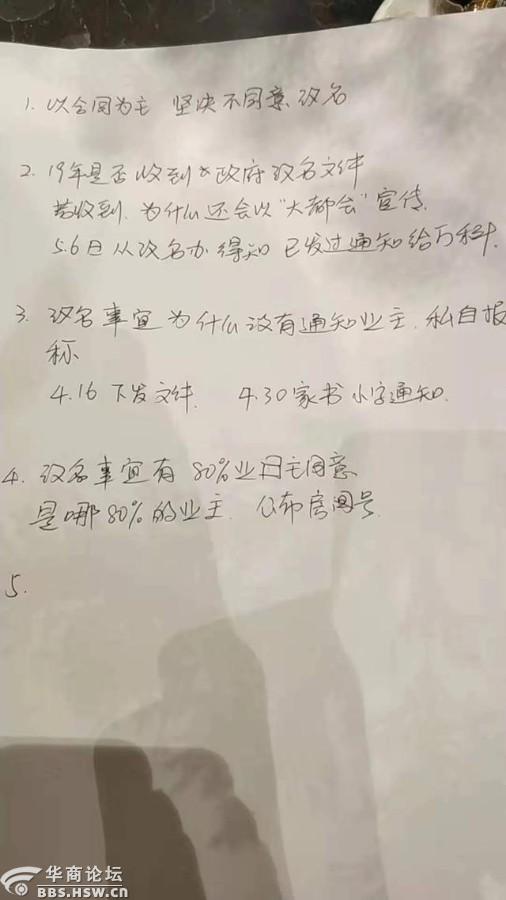 1. 以合同为主 坚决不同意改名
2. 19年是否收到政府改名文件
若收到,为什么还会以“大都会”宣传,
5.6日从改名办得知已发过通知给万科.
3. 改名事宜为什么没有通知业主,私自报
称
4.16 下发文件. 4.30家书小字通知.
4. 改名事宜有80%业主同意
是哪80%的业主. 公布房间号.
5.
华商论坛
BBS.HSW.CN